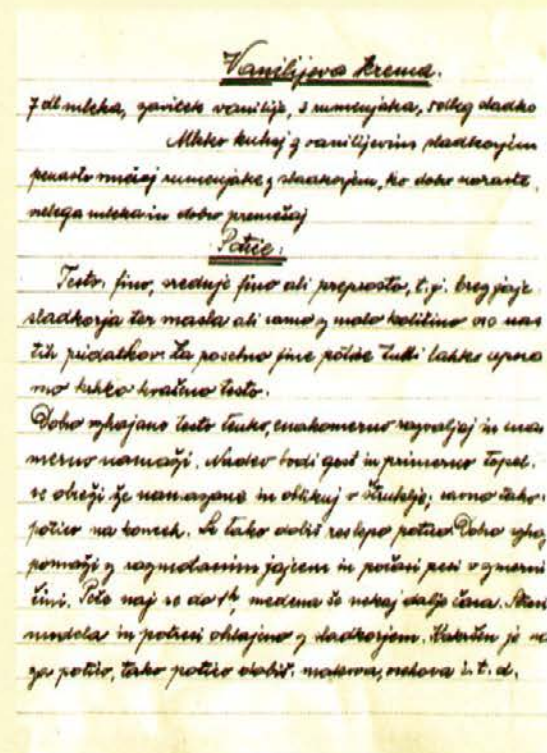 Vanilijeva krema.
7 dl mleka, zavitek vanilije, 5 rumenjaka, sladko
Mleko kuhaj z vanilijevim sladkorjem
penasto mešaj rumenjake z sladkorjem, ko dobro naraste,
mleka in dobro premešaj
Potice:
Testo: fino, srednje fino ali preprosto, t.j. brez jajc
sladkorja ter masla ali samo z malo količino
teh pridatkov. Za posebno fine potice tudi lahko upora
mo krhko kvašeno testo.
Dobro vzhajano testo tenko, enakomerno razvaljaj in ena
merno namaži. Nadev bodi gost in primerno topel.
se obreži že namazano in oblikuj v štrukelj; samo tako
potico na koncih. Le tako dobiš res lepo potico. Dobro vzhaj
pomaži z jajcem in počasi peci v zmerni
čini. Peče naj se do 1h, medena še nekaj dalje časa.
modela in potresi ohlajeno z sladkorjem. Kakršen je na
za potico, tako potico dobiš: makova, orehova i.t.d.